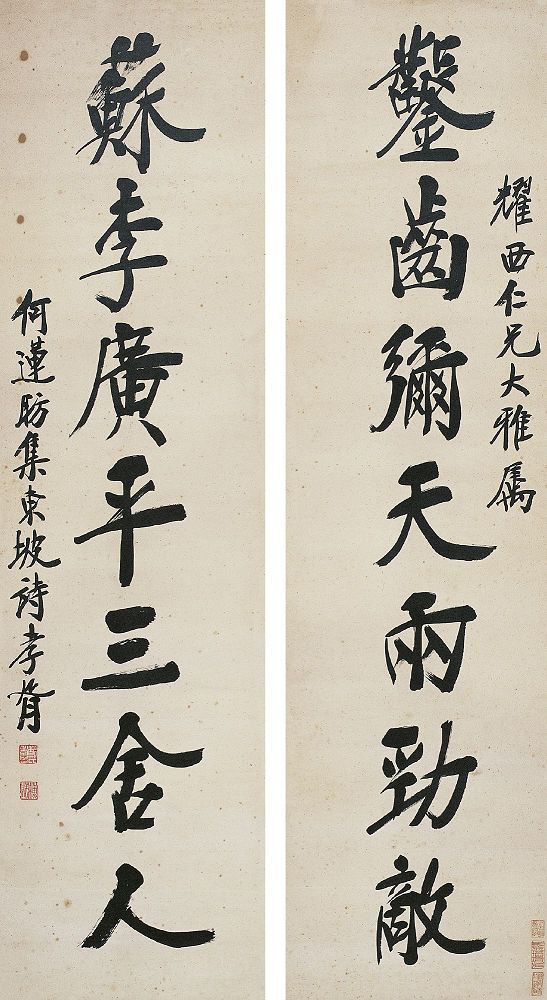 耀西仁兄大雅属
鑿齒彌天兩勁敵
蘇李廣平三舍人
何蓮舫集東坡詩孝胥